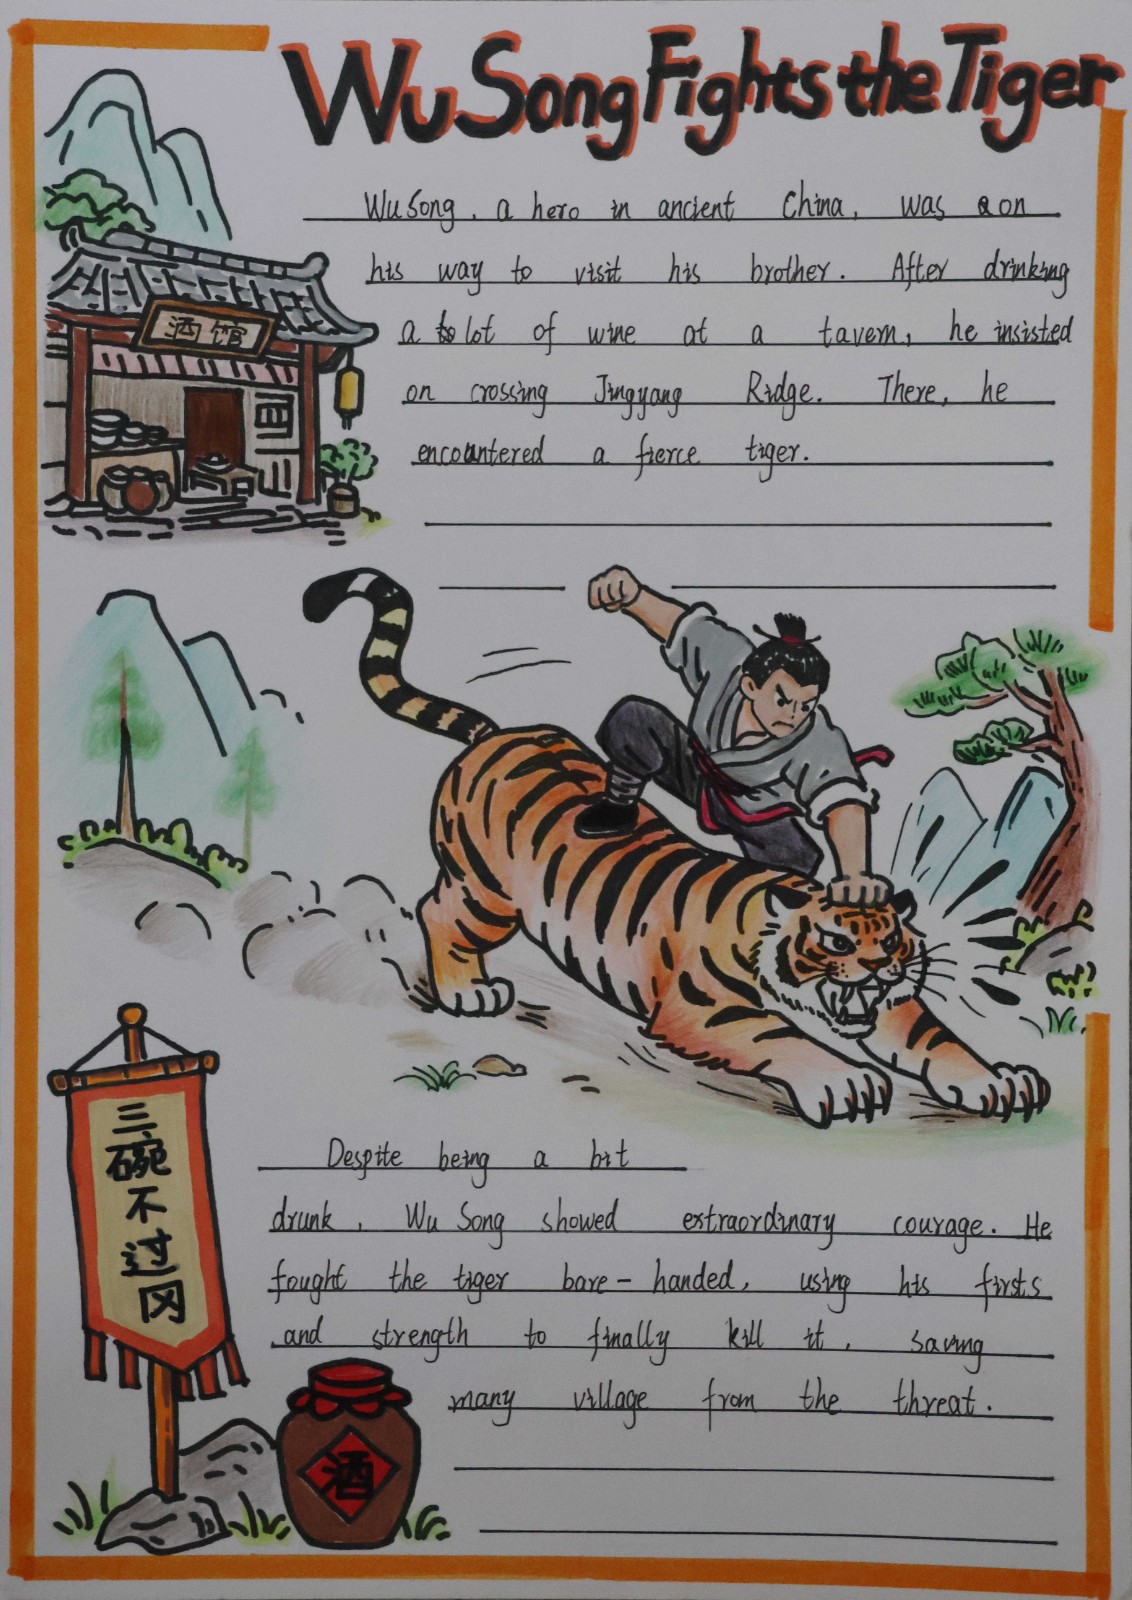 Wu Song Fights the Tiger
Wu Song, a hero in ancient China, was on
his way to visit his brother. After drinking
a lot of wine at a tavern, he insisted
on crossing Jingyang Ridge. There, he
encountered a fierce tiger.
酒馆
三碗不过冈
Despite being a bit
drunk, Wu Song showed extraordinary courage. He
fought the tiger bare-handed, using his firsts
and strength to finally kill it, saving
many village from the threat.
酒